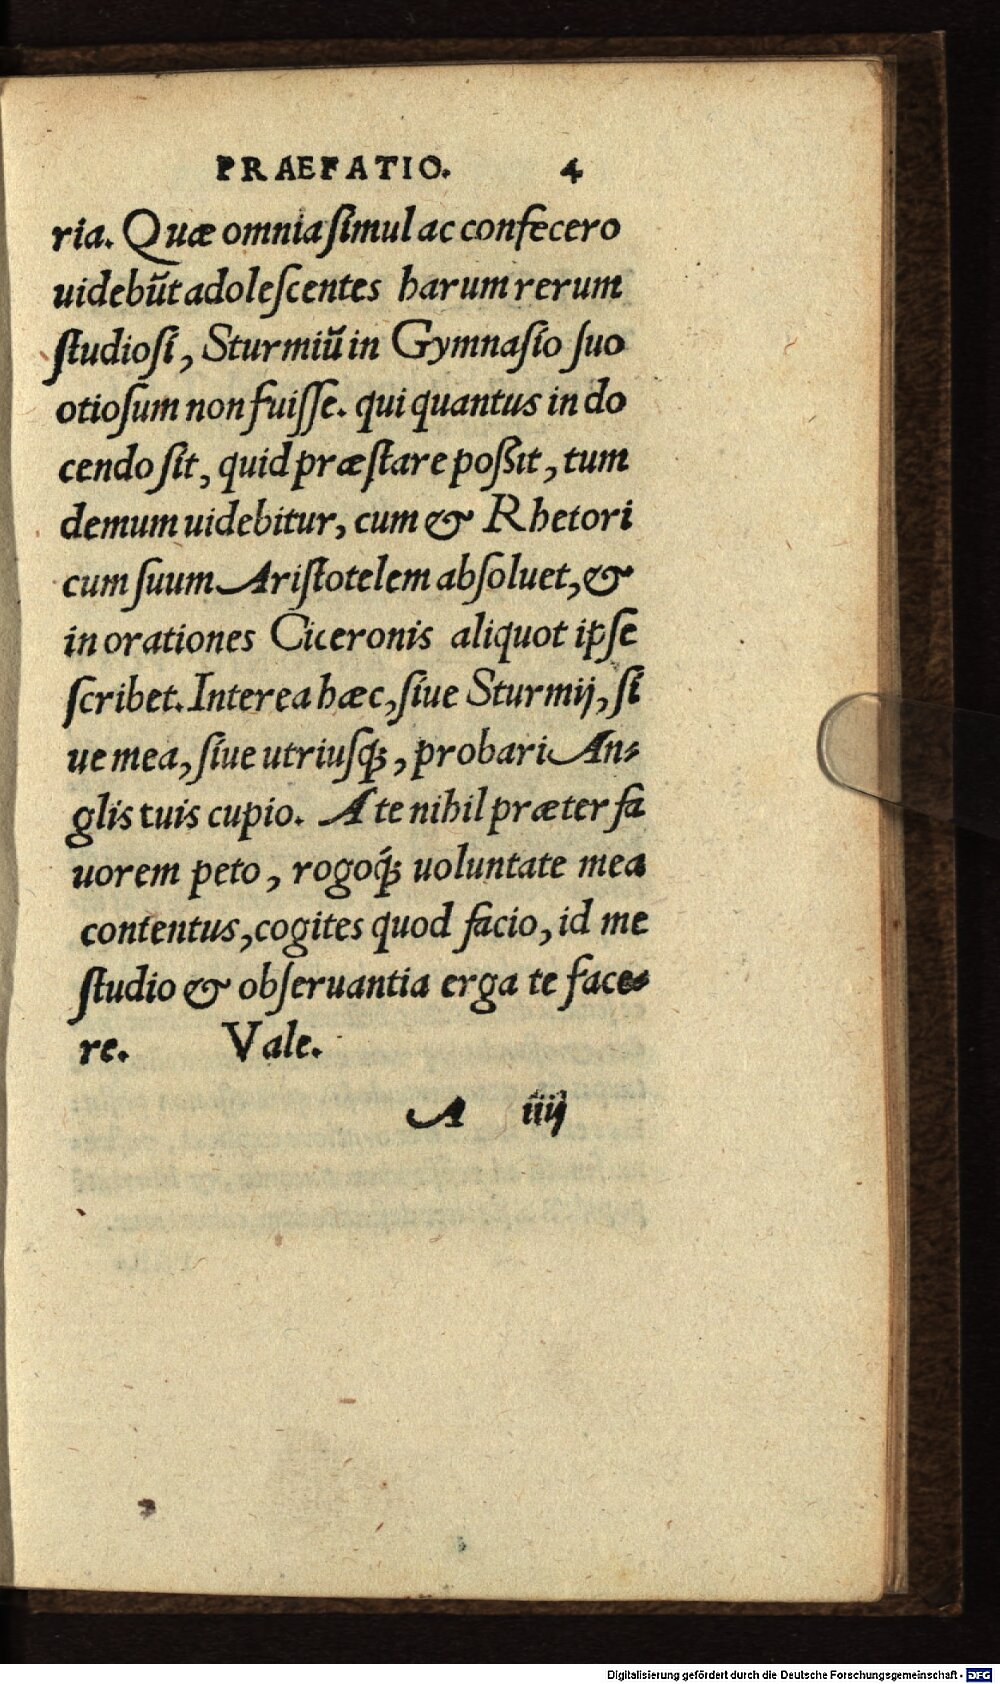 PRAEFATIO. 4
ria. Quæ omnia ſimul ac confecero
uidebūt adoleſcentes harum rerum
ſtudioſi, Sturmiū in Gymnaſio ſuo
otioſum non fuiſſe. qui quantus in do
cendo ſit, quid præſtare poßit, tum
demum uidebitur, cum & Rhetori
cum ſuum Ariſtotelem abſoluet, &
in orationes Ciceronis aliquot ipſe
ſcribet. Interea hæc, ſiue Sturmij, ſi
ue mea, ſiue utriusq́;, probari An⸗
glis tuis cupio. A te nihil præter fa
uorem peto, rogoq́; uoluntate mea
contentus, cogites quod facio, id me
ſtudio & obſeruantia erga te face⸗
re. Vale.
A iiij
Digitalisierung gefördert durch die Deutsche Forschungsgemeinschaft - DFG